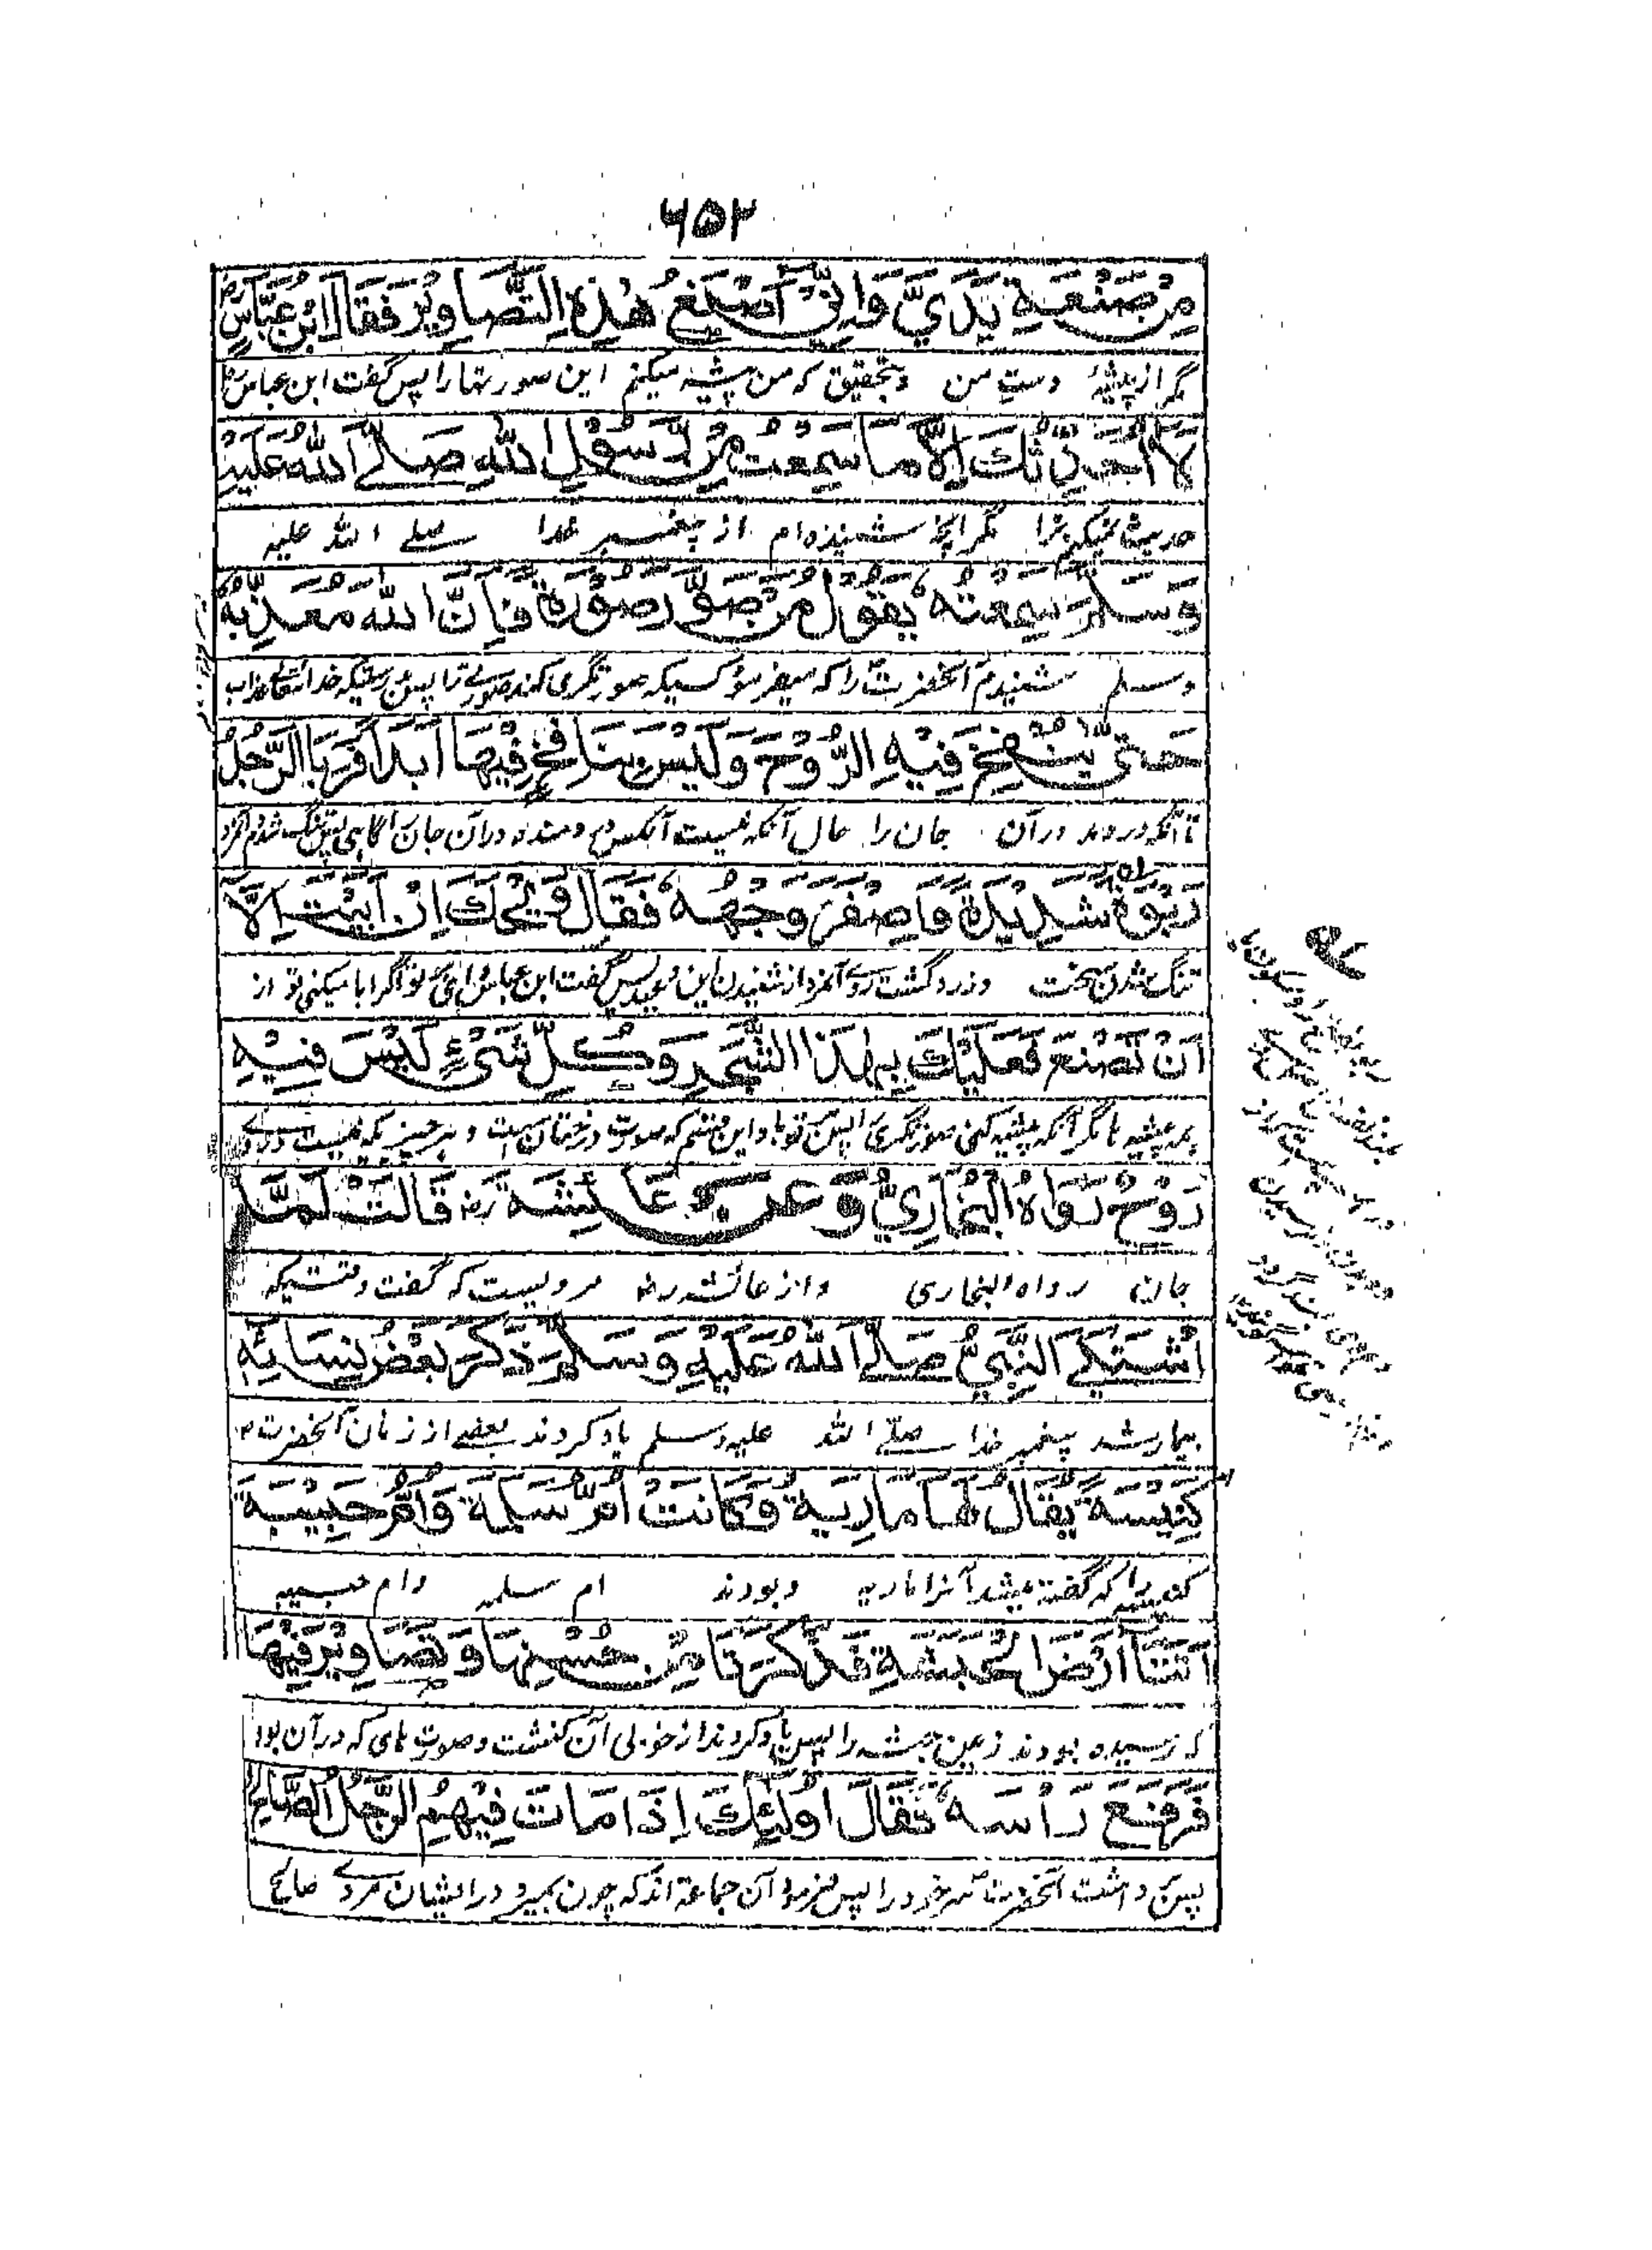 ۶۵۲
مِنْ صَنْعَةِ يَدَيَّ وَاِنِّیْ اَصْنَعُ هٰذِهِ التَّصَاوِیْرَ فَقَالَ ابْنُ عَبَّاسٍ رض
مگر از پیشهٔ دست من وبتحقیق که من پیشه میکنم این صورتها را پس گفت ابن عباس رض
لَا اُحَدِّثُكَ اِلَّا مَا سَمِعْتُ مِنْ رَّسُوْلِ اللّٰهِ صَلَّی اللّٰهُ عَلَیْهِ
حدیث نمیکنم ترا مگر آنچه شنیده ام از پیغمبر خدا صلے الله علیه
وَسَلَّمَ سَمِعْتُهُ یَقُوْلُ مَنْ صَوَّرَ صُوْرَةً فَاِنَّ اللّٰهَ مُعَذِّبُهُ
وسلم شنیدم آنحضرت را که میفرمود کسیکه صورتگری کند صورتے را پس بدرستیکه خدا تعالے عذاب
حَتّٰی یَنْفُخَ فِیْهِ الرُّوْحَ وَلَیْسَ بِنَافِخٍ فِیْهَا اَبَدًا فَرَبَا الرَّجُلُ
تا آنکه در دمد در آن جان را حال آنکه نیست آنکس دمنده در آن جان گاهی پس تنگ شد دم مرد
رَبْوَةً شَدِیْدَةً وَاصْفَرَّ وَجْهُهُ فَقَالَ وَیْحَكَ اِنْ اَبَیْتَ اِلَّا
تنگ شدن سخت وزرد گشت روے آنمرد از شنیدن این وعید پس گفت ابن عباس واے بر تو اگر ابا میکنی تو از
اَنْ تَصْنَعَ فَعَلَیْكَ بِهٰذَا الشَّجَرِ وَكُلِّ شَیْءٍ لَیْسَ فِیْهِ
همه پیشه ها مگر آنکه پیشه کنی صورتگری پس بر تو باد این قسم که صورت درختان ست و هر چیزیکه نیست دروے
رُوْحٌ رَوَاهُ الْبُخَارِیُّ وَعَنْ عَائِشَةَ رض قَالَتْ لَمَّا
جان رواه البخاری واز عائشه رض مرویست که گفت وقتیکه
اشْتَكَی النَّبِیُّ صَلَّی اللّٰهُ عَلَیْهِ وَسَلَّمَ ذَكَرَ بَعْضُ نِسَائِهِ
بیمار شد پیغمبر خدا صلے الله علیه وسلم یاد کردند بعضے از زنان آنحضرت
كَنِیْسَةً یُّقَالُ لَهَا مَارِیَةُ وَكَانَتْ اُمُّ سَلَمَةَ وَاُمُّ حَبِیْبَةَ
کنیسه را که گفته میشد آنرا ماریه وبودند ام سلمه وام حبیبه
اَتَتَا اَرْضَ الْحَبَشَةِ فَذَكَرَتَا مِنْ حُسْنِهَا وَتَصَاوِیْرَ فِیْهَا
که رسیده بودند زمین حبشه را پس یاد کردند از خوبی آن کنشت وصورت های که در آن بود
فَرَفَعَ رَأْسَهُ فَقَالَ اُولٰئِكَ اِذَا مَاتَ فِیْهِمُ الرَّجُلُ الصَّالِحُ
پس برداشت آنحضرت سر خود را پس فرمود آن جماعة اند که چون بمیرد در ایشان مردے صالح